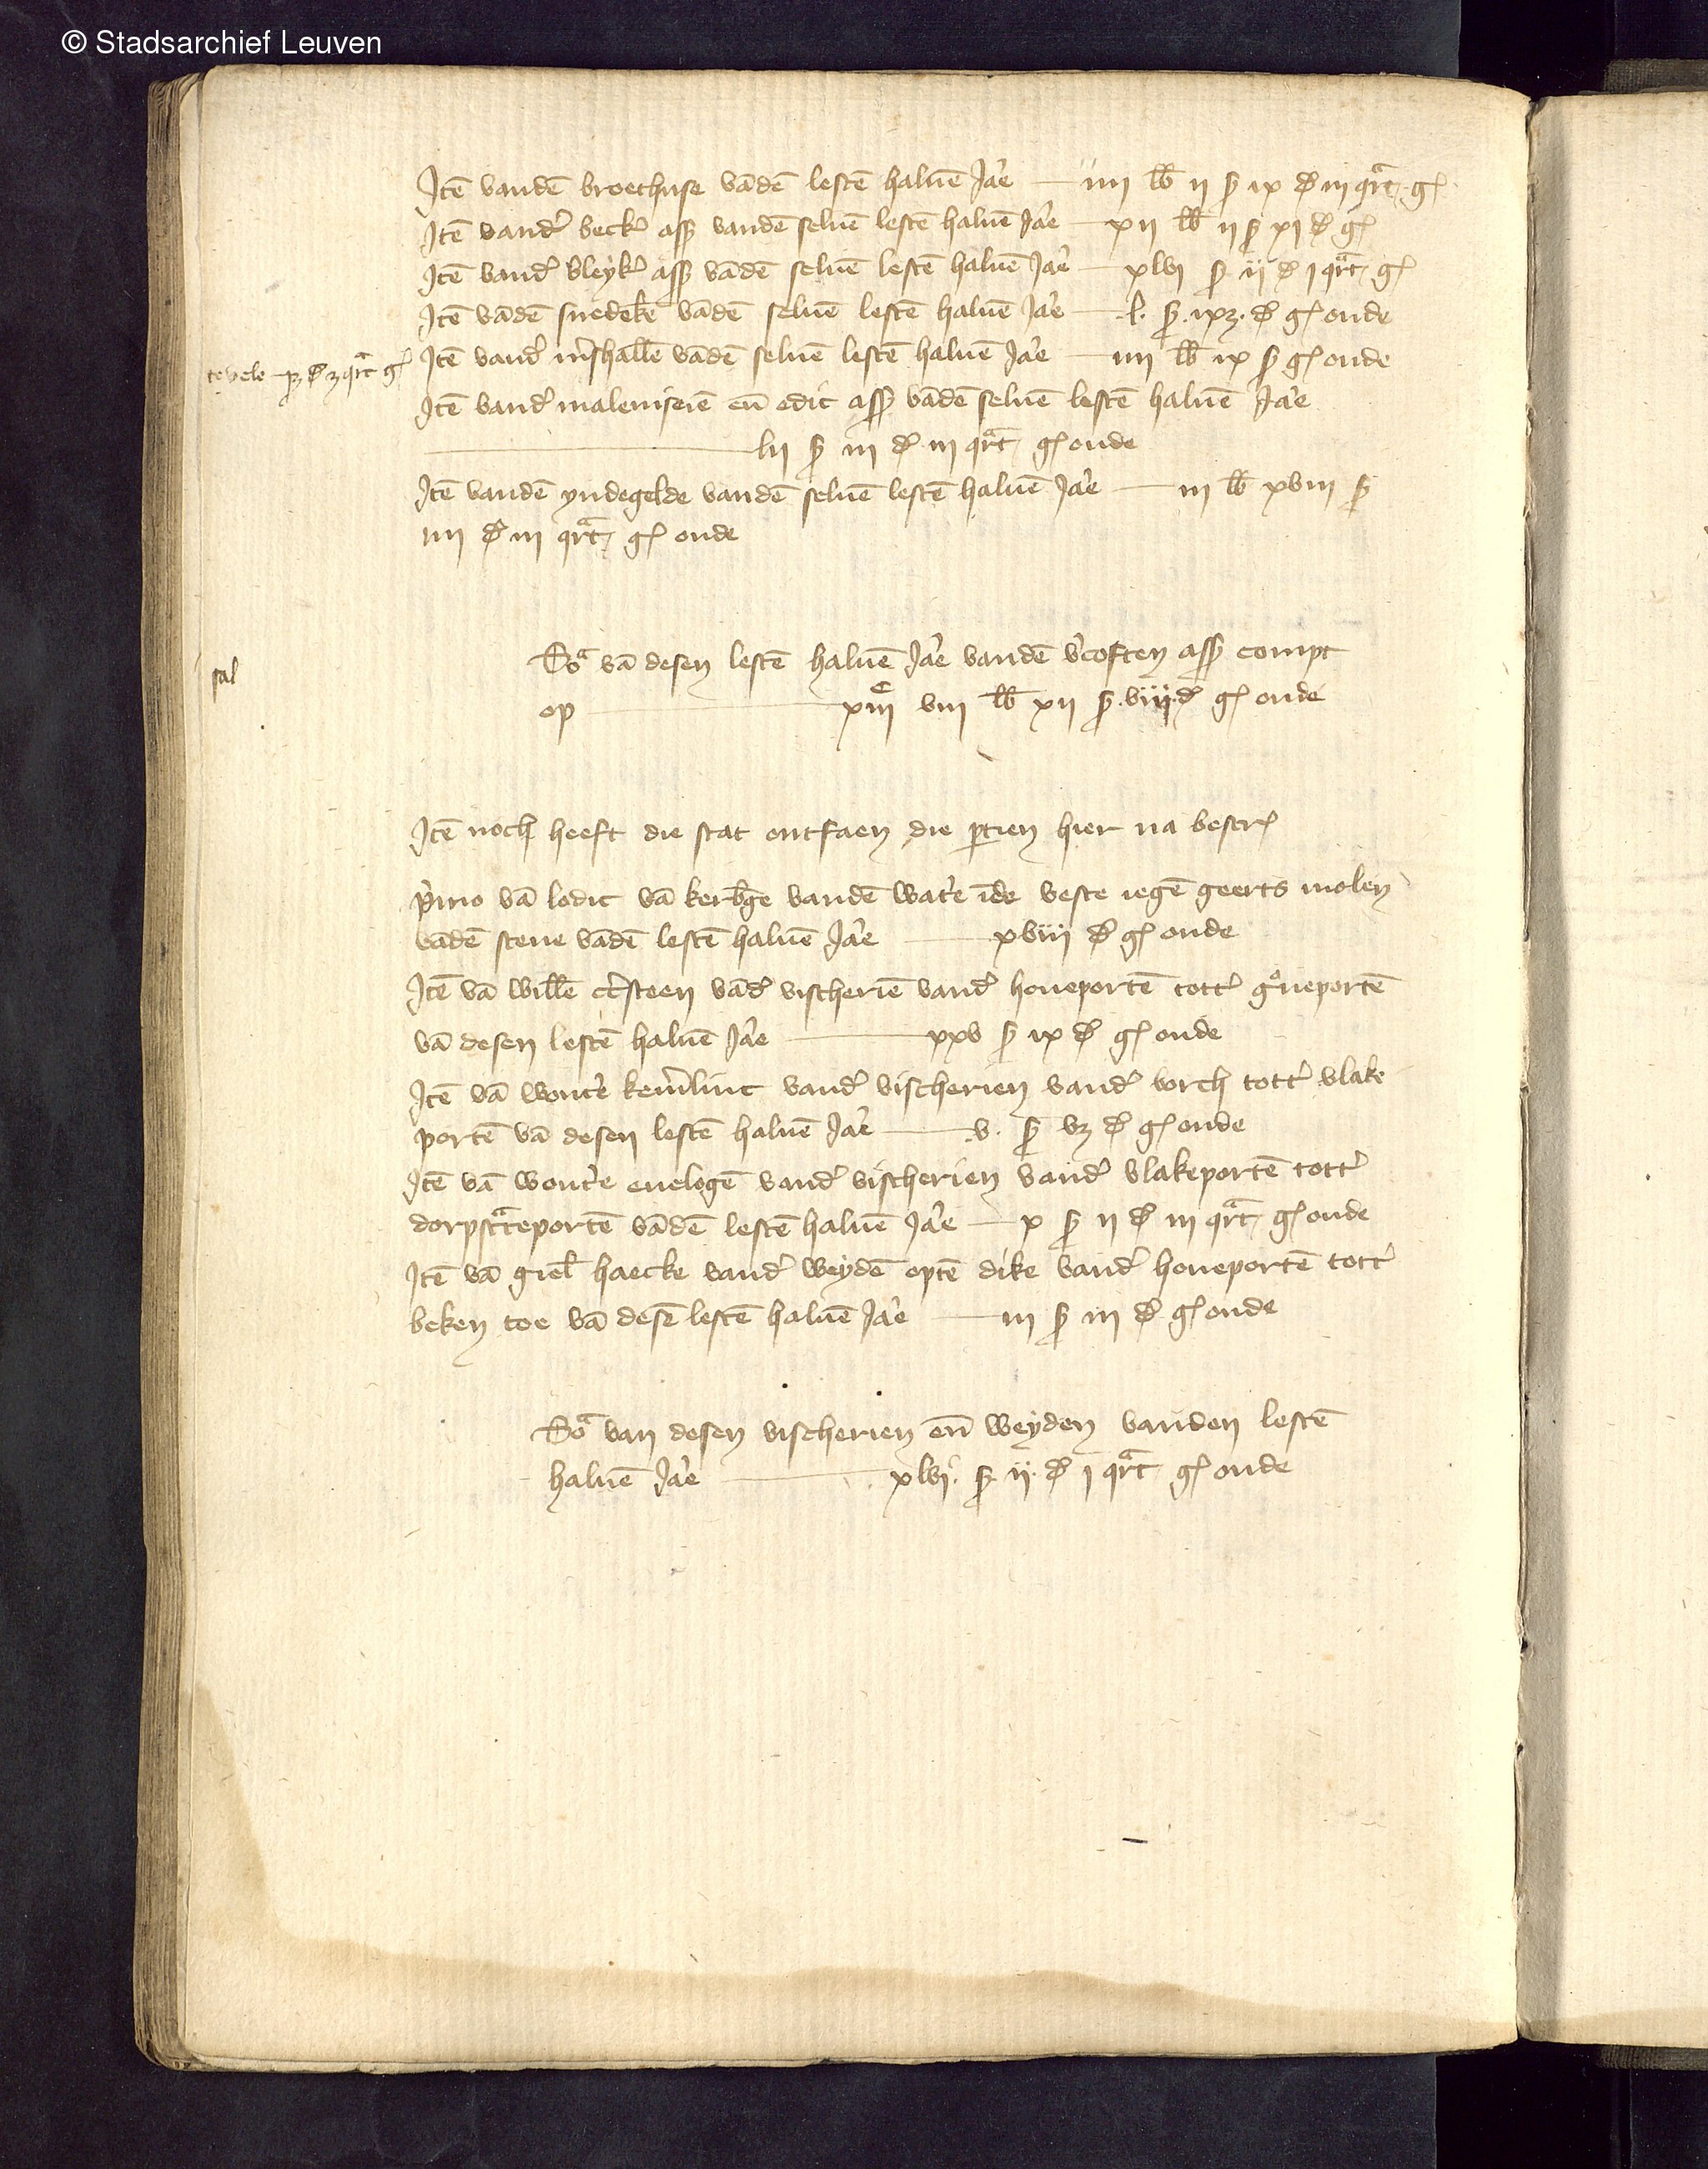 © Stadsarchief Leuven
Itē vandē broechuse vādē lestē haluē Jaͬe iiij lb̄ ij s ix d iij qrᵃt gͬ
Itē vandͬ beckͬ assͥ vandē seluē lestē haluē Jaͬe xij lb̄ ij s xi d gͬ
Itē vandͬ bleykͬ assͥ vādē seluē lestē haluē Jaͬe xlvi s ij d i qrᵃt gͬ
Itē vādē snedekē vādē seluē lestē haluē Jaͬe l. s. ixʒ. d gͬ oude
te vele ʒ qrᵃt gͬ
Itē vandͬ mͬshallē vādē seluē lestē haluē Jaͬe iiij lb̄ ix s gͬ oude
Itē vandͬ maleniserē en̄ edic assͥ vādē seluē lestē haluē Jaͬe
lij s iij d iij qrᵃt gͬ oude
Itē vandē yndegelde vandē seluē lestē haluē Jaͬe iij lb̄ xviij s
iiij d iij qrᵃt gͬ oude
sal
Soᵃ vā desen lestē haluē Jaͬe vandē vͬcoften assͥ compt
op xiijᶜ viij lb̄ xij s. viij. d gͬ oude
Itē noch heeft die stat ontfaen die ptien hier na bescrͬ
pͥmo vā lodic vā kerbͬgē vandē watͬe īde veste iegē geerts molen
vādē stene vādē lestē haluē Jaͬe xviij d gͬ oude
Itē vā willē cͬsteen vādͬ visscheriē vandͬ houeportē tottͬ gͦueportē
vā desen lestē haluē Jaͬe xxv s ix d gͬ oude
Itē vā woutͬe kemͬlinc vandͬ visscherien vandͬ borch tottͬ vlake
portē vā desen lestē haluē Jaͬe v. s vʒ d gͬ oude
Itē vā woutͬe euelogē vandͬ visscherien vandͬ vlakeportē tottͬ
dorpstᵃteportē vādē lestē haluē Jaͬe x s ij d iij qrᵃt gͬ oude
Itē vā giel̄ haecke vandͬ weydē optē dike vandͬ houeportē tottͬ
beken toe vā desē lestē haluē Jaͬe iij s iij d gͬ oude
Soᵃ van desen visscherien en̄ weyden vanden lestē
haluē Jaͬe xlvi. s ij. d i qrᵃt gͬ oude